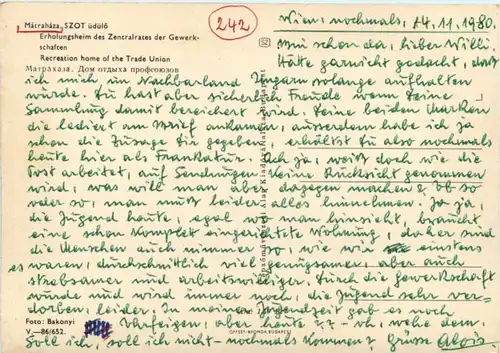 Mátraháza, SZOT üdülő
Erholungsheim des Zentralrates der Gewerk-
schaften
Recreation home of the Trade Union
Матрахаза. Дом отдыха профсоюзов
242
Wien, nochmals, 14.11.1980.
Bin schon da, lieber Willi.
Hätte garnicht gedacht, daß
ich mich im Nachbarland Ungarn solange aufhalten
würde. Du hast aber sicherlich Freude wenn Deine
Sammlung damit bereichert wird. Deine beiden Marken
die lediert am Brief ankamen, ausserdem habe ich ja
schon die Zusage Dir gegeben, erhältst Du also nochmals
heute hier als Frankatur. Ach ja, weißt doch wie die
Post arbeitet, auf Sendungen keine Rücksicht genommen
wird, was will man aber dagegen machen? Ob so
oder so, man muß leider alles hinnehmen. Ja ja,
die Jugend heute, egal wo man hinsieht, braucht
eine schon komplett eingerichtete Wohnung, daher sind
die Menschen auch nimmer so, wie wir einstens
es waren, durchschnittlich viel genügsamer aber auch
strebsamer und arbeitswilliger. Durch die Gewerkschaft
wurde und wird immer noch, die Jugend sehr ver-
dorben, leider. In meiner Jugendzeit gab es noch
Ohrfeigen, aber heute?? - oh, wehe dem.
Soll ich, soll ich nicht - nochmals kommen? Grüsse Alois
Foto: Bakonyi
V.—86/652.
OFFSET-NYOMDA, BUDAPEST